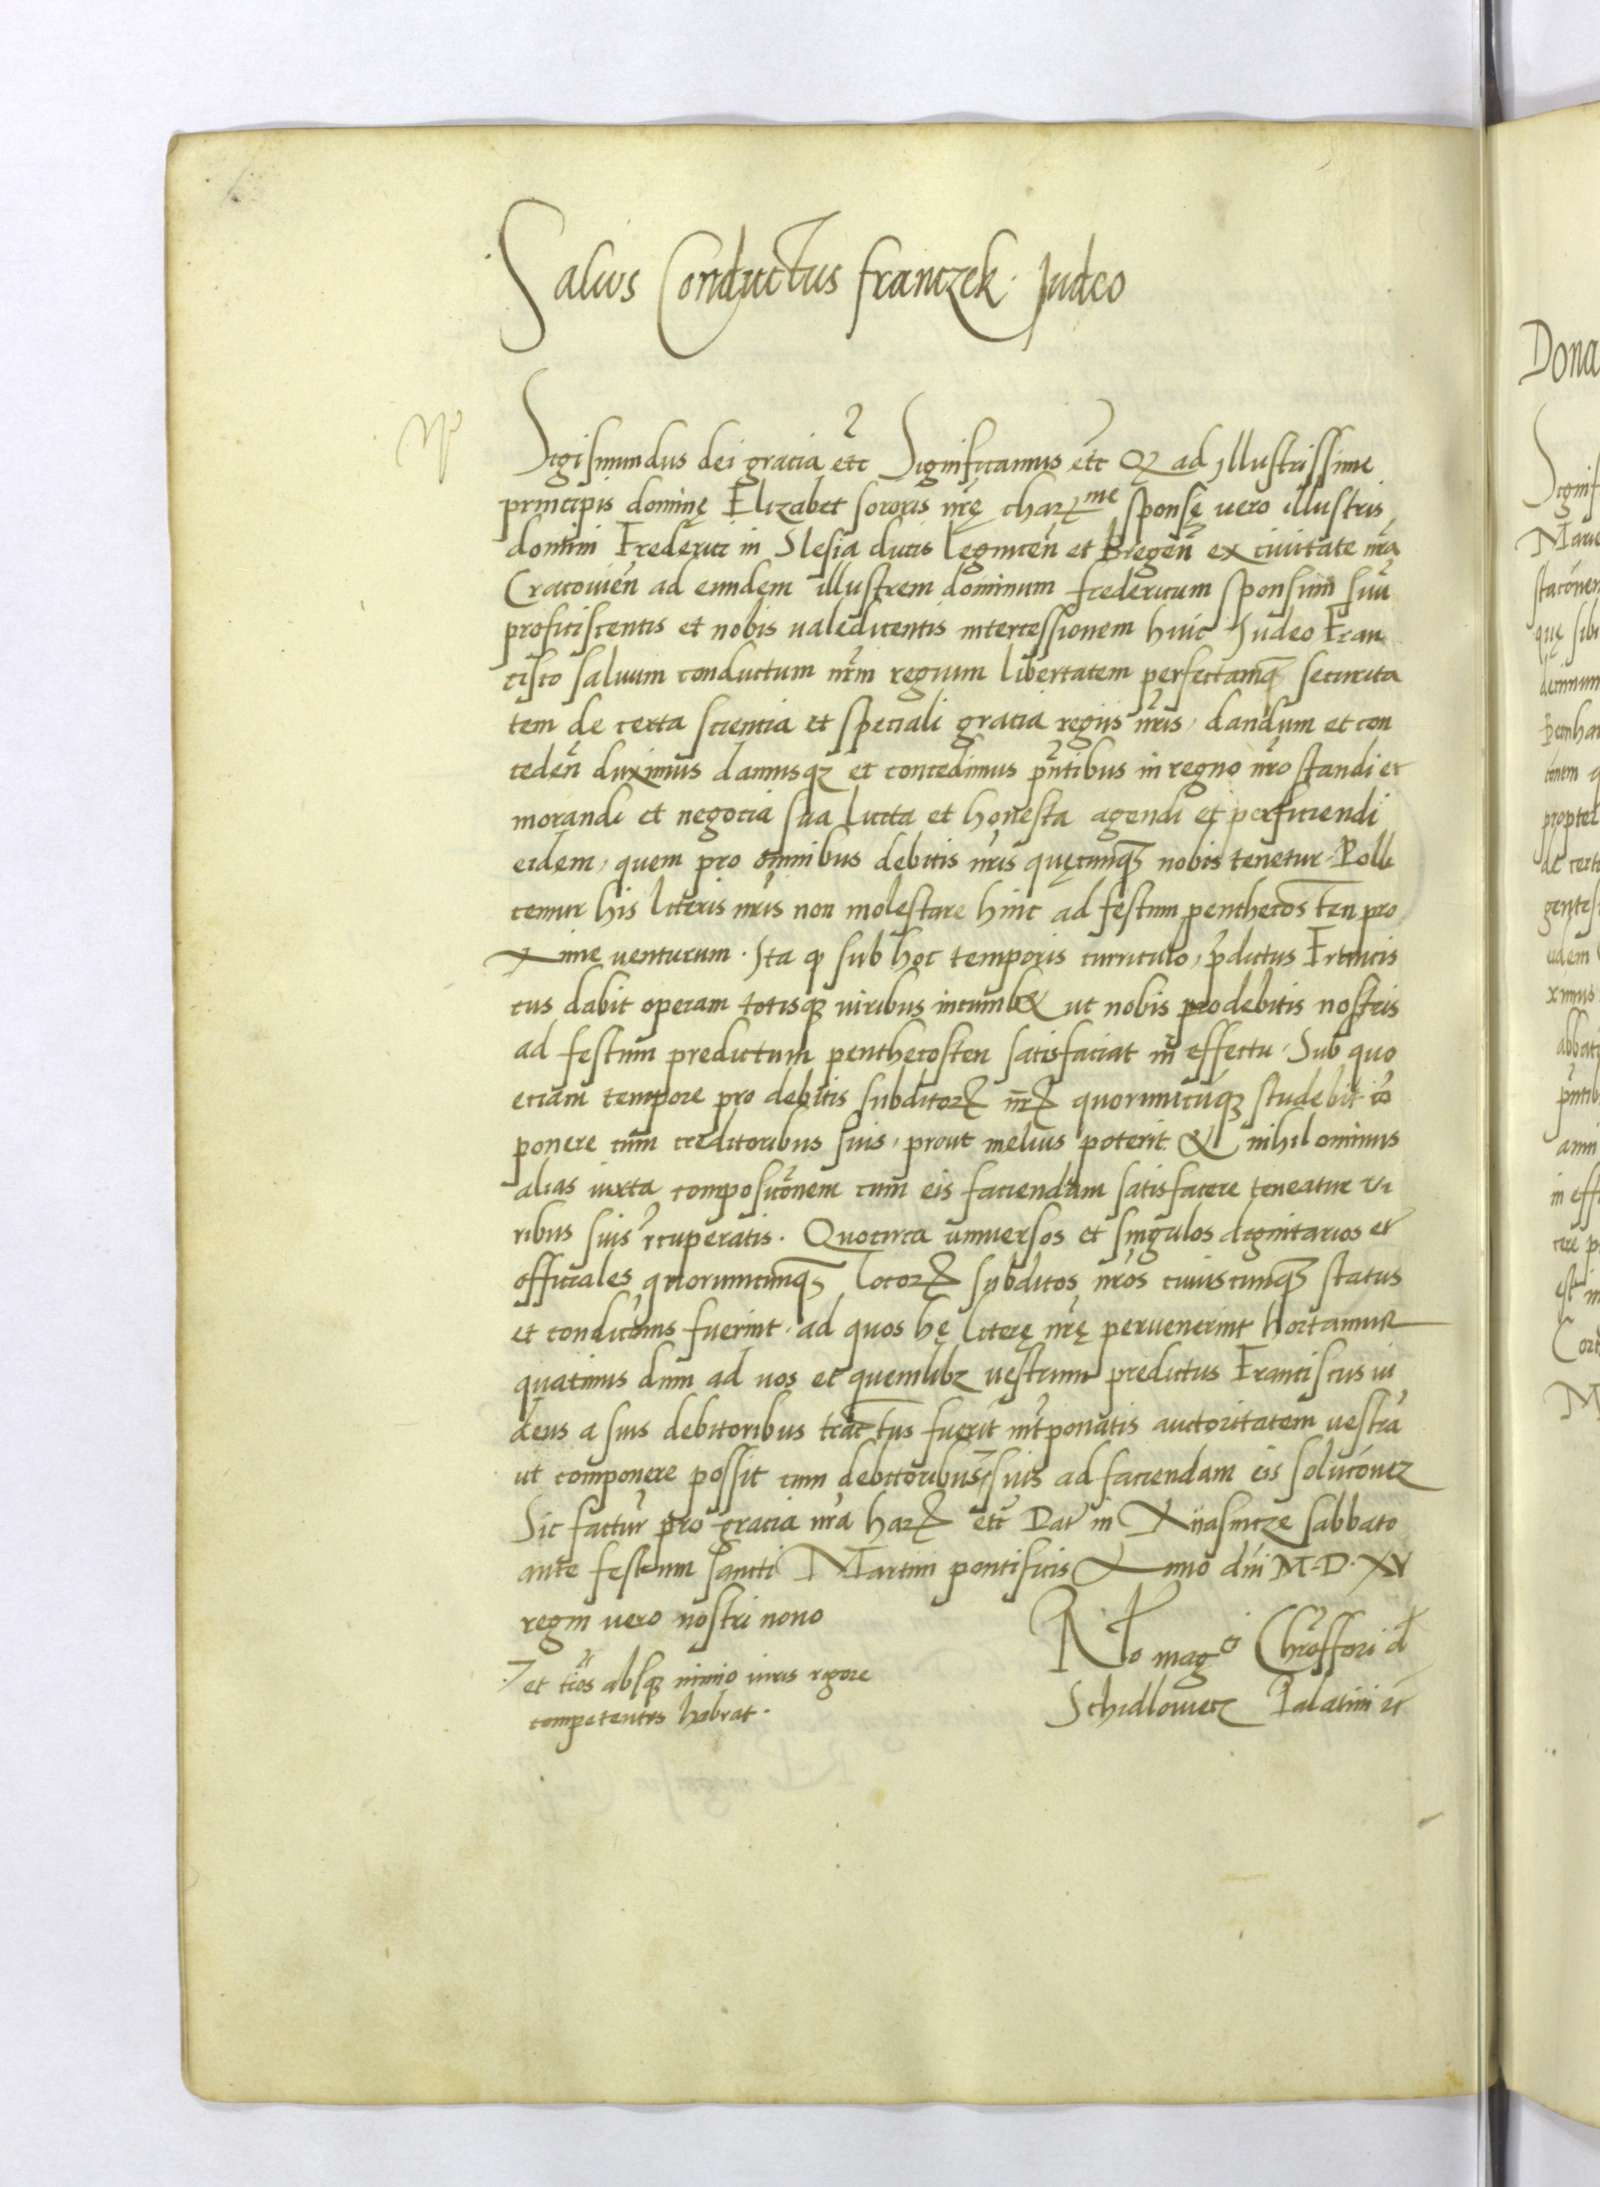 Saluus Conductus franczek Judeo
Sigismundus dei gracia etc Significamus etc Q ad jllustrissime
principis dominę Elizabet sororis nrę charme sponsę vero illustris
domini Frederici in Slesia ducis Legnicen et Bregen ex ciuitate nra
Cracouien ad eundem illustrem dominum fredericum sponsum suu
proficiscentis et nobis ualedicentis intercessionem huic Judeo Fran
cisco saluum conductum nrm regium libertatem perfectamq securita
tem de certa sciencia et speciali gracia regiis nris, dandum et con
ceden duximus damusq et concedimus pntibus in regno nro standi et
morandi et negocia sua licita et honesta agendi et perficiendi
eidem, quem pro omnibus debitis nris quęcunq nobis tenetur. Polli
cemur his literis nris non molestare hinc ad festum penthecosten pro
xime venturum. Ita q sub hoc temporis curriculo, pdictus Francis
cus dabit operam totisq uiribus incumbet ut nobis pro debitis nostris
ad festum predictum penthecosten satisfaciat in effectu. Sub quo
eciam tempore pro debitis subditor nr quorumcuq studebit co
ponere cum creditoribus suis, prout melius poterit Et nihilominus
alias iuxta composiconem cum eis faciendam satisfacere teneatur vi
ribus suis recuperatis. Quocirca uniuersos et singulos dignitarios et
officiales quorumcunq locor subditos nros cuiuscunq status
et condiconis fuerint. ad quos hę literę nrę peruenerint hortamur
quatinus dum ad uos et quemlibz uestrum predictus Franciscus iu
deus a suis debitoribus tractus fuerit intponatis auctoritatem uestra
ut componere possit cum debitoribus suis ad faciendam eis solucone
Sic factur pro gracia nra har etc Dat in sabbato
ante festum sancti Martini pontificis Anno dni M.D.XV
regni vero nostri nono
et tios absq nimio iuris rigore
competentes habeat.
Rlo magci Chroffori d
Schidlowecz Palatini et
Dona